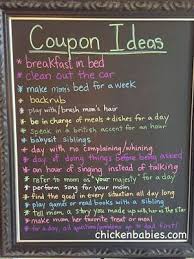 Coupon Ideas
* breakfast in bed
* clean out the car
* make mom's bed for a week
* backrub
* play with/brush mom's hair
* be in charge of meals + dishes for a day
* speak in a british accent for an hour
* babysit siblings
* day with no complaining/whining
* day of doing things before being asked
* an hour of singing instead of talking
* refer to mom as "your majesty" for a day
* perform song for your mom
* find the good in every situation all day long
* play games or read books with a sibling
* tell mom a story you made up with her as the star
* make mom her favorite treat or meal
* for a day
chickenbabies.com